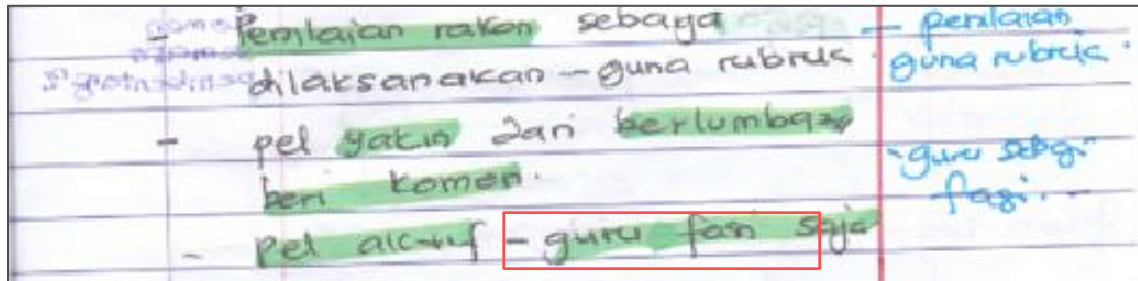 - Pemilaian rakan sebaga
dilaksanakan - guna rubruk
- pel yakin dan berlumba
beri komen.
- Pel aktif - guru fasi saja
- penilaian
guna rubrik
"guru sebgi"
fasi..